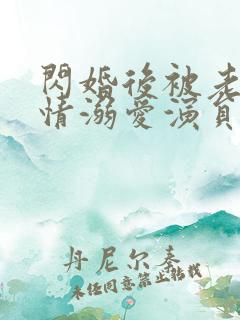 閃婚後被老
情溺愛演員
丹尼尔泰
未经同意禁止转载